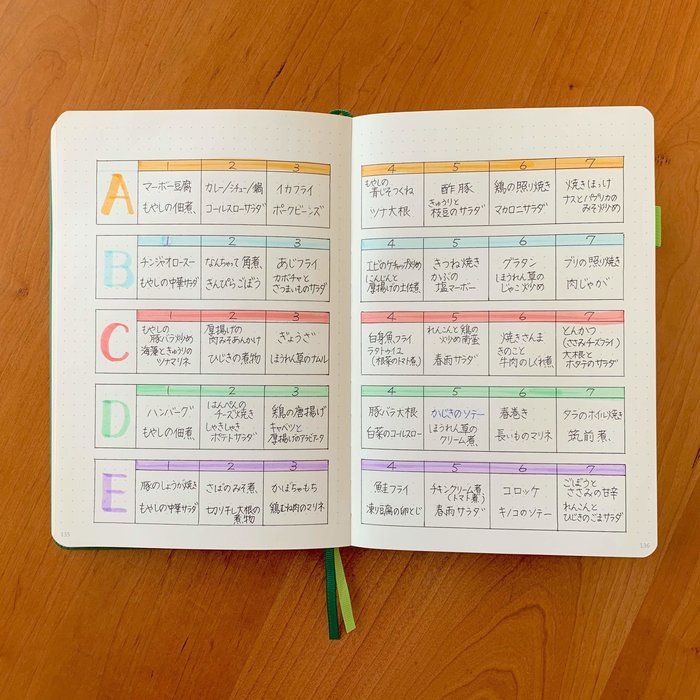 A
1
マーボー豆腐
もやしの佃煮
2
カレー/シチュー/鍋
コールスローサラダ
3
イカフライ
ポークビーンズ
4
もやしの
青じそつくね
ツナ大根
5
酢豚
きゅうりと
枝豆のサラダ
6
鶏の照り焼き
マカロニサラダ
7
焼きほっけ
ナスとパプリカの
みそ炒め
B
1
チンジャオロースー
もやしの中華サラダ
2
なんちゃって角煮
きんぴらごぼう
3
あじフライ
カボチャと
さつまいものサラダ
4
エビのケチャップ炒め
にんじんと
厚揚げの土佐煮
5
きつね焼き
かぶの
塩マーボー
6
グラタン
ほうれん草の
じゃこ炒め
7
ブリの照り焼き
肉じゃが
C
1
もやしの
豚バラ炒め
海藻ときゅうりの
ツナマリネ
2
厚揚げの
肉みそあんかけ
ひじきの煮物
3
ぎょうざ
ほうれん草のナムル
4
白身魚フライ
ラタトゥイユ
(根菜のトマト煮)
5
れんこんと鶏の
炒め南蛮
春雨サラダ
6
焼きさんま
きのこと
牛肉のしぐれ煮
7
とんかつ
(ささみチーズフライ)
大根と
ホタテのサラダ
D
1
ハンバーグ
もやしの佃煮
2
はんぺんの
チーズ焼き
しゃきしゃき
ポテトサラダ
3
鶏の唐揚げ
キャベツと
厚揚げのアラビアータ
4
豚バラ大根
白菜のコールスロー
5
かじきのソテー
ほうれん草の
クリーム煮
6
春巻き
長いものマリネ
7
タラのホイル焼き
筑前煮
E
1
豚のしょうが焼き
もやしの中華サラダ
2
さばのみそ煮
切り干し大根の
煮物
3
かぼちゃもち
鶏むね肉のマリネ
4
鮭フライ
凍り豆腐の卵とじ
5
チキンクリーム煮
(トマト煮)
春雨サラダ
6
コロッケ
キノコのソテー
7
ごぼうと
ささみの甘辛
れんこんと
ひじきのごまサラダ
135
136